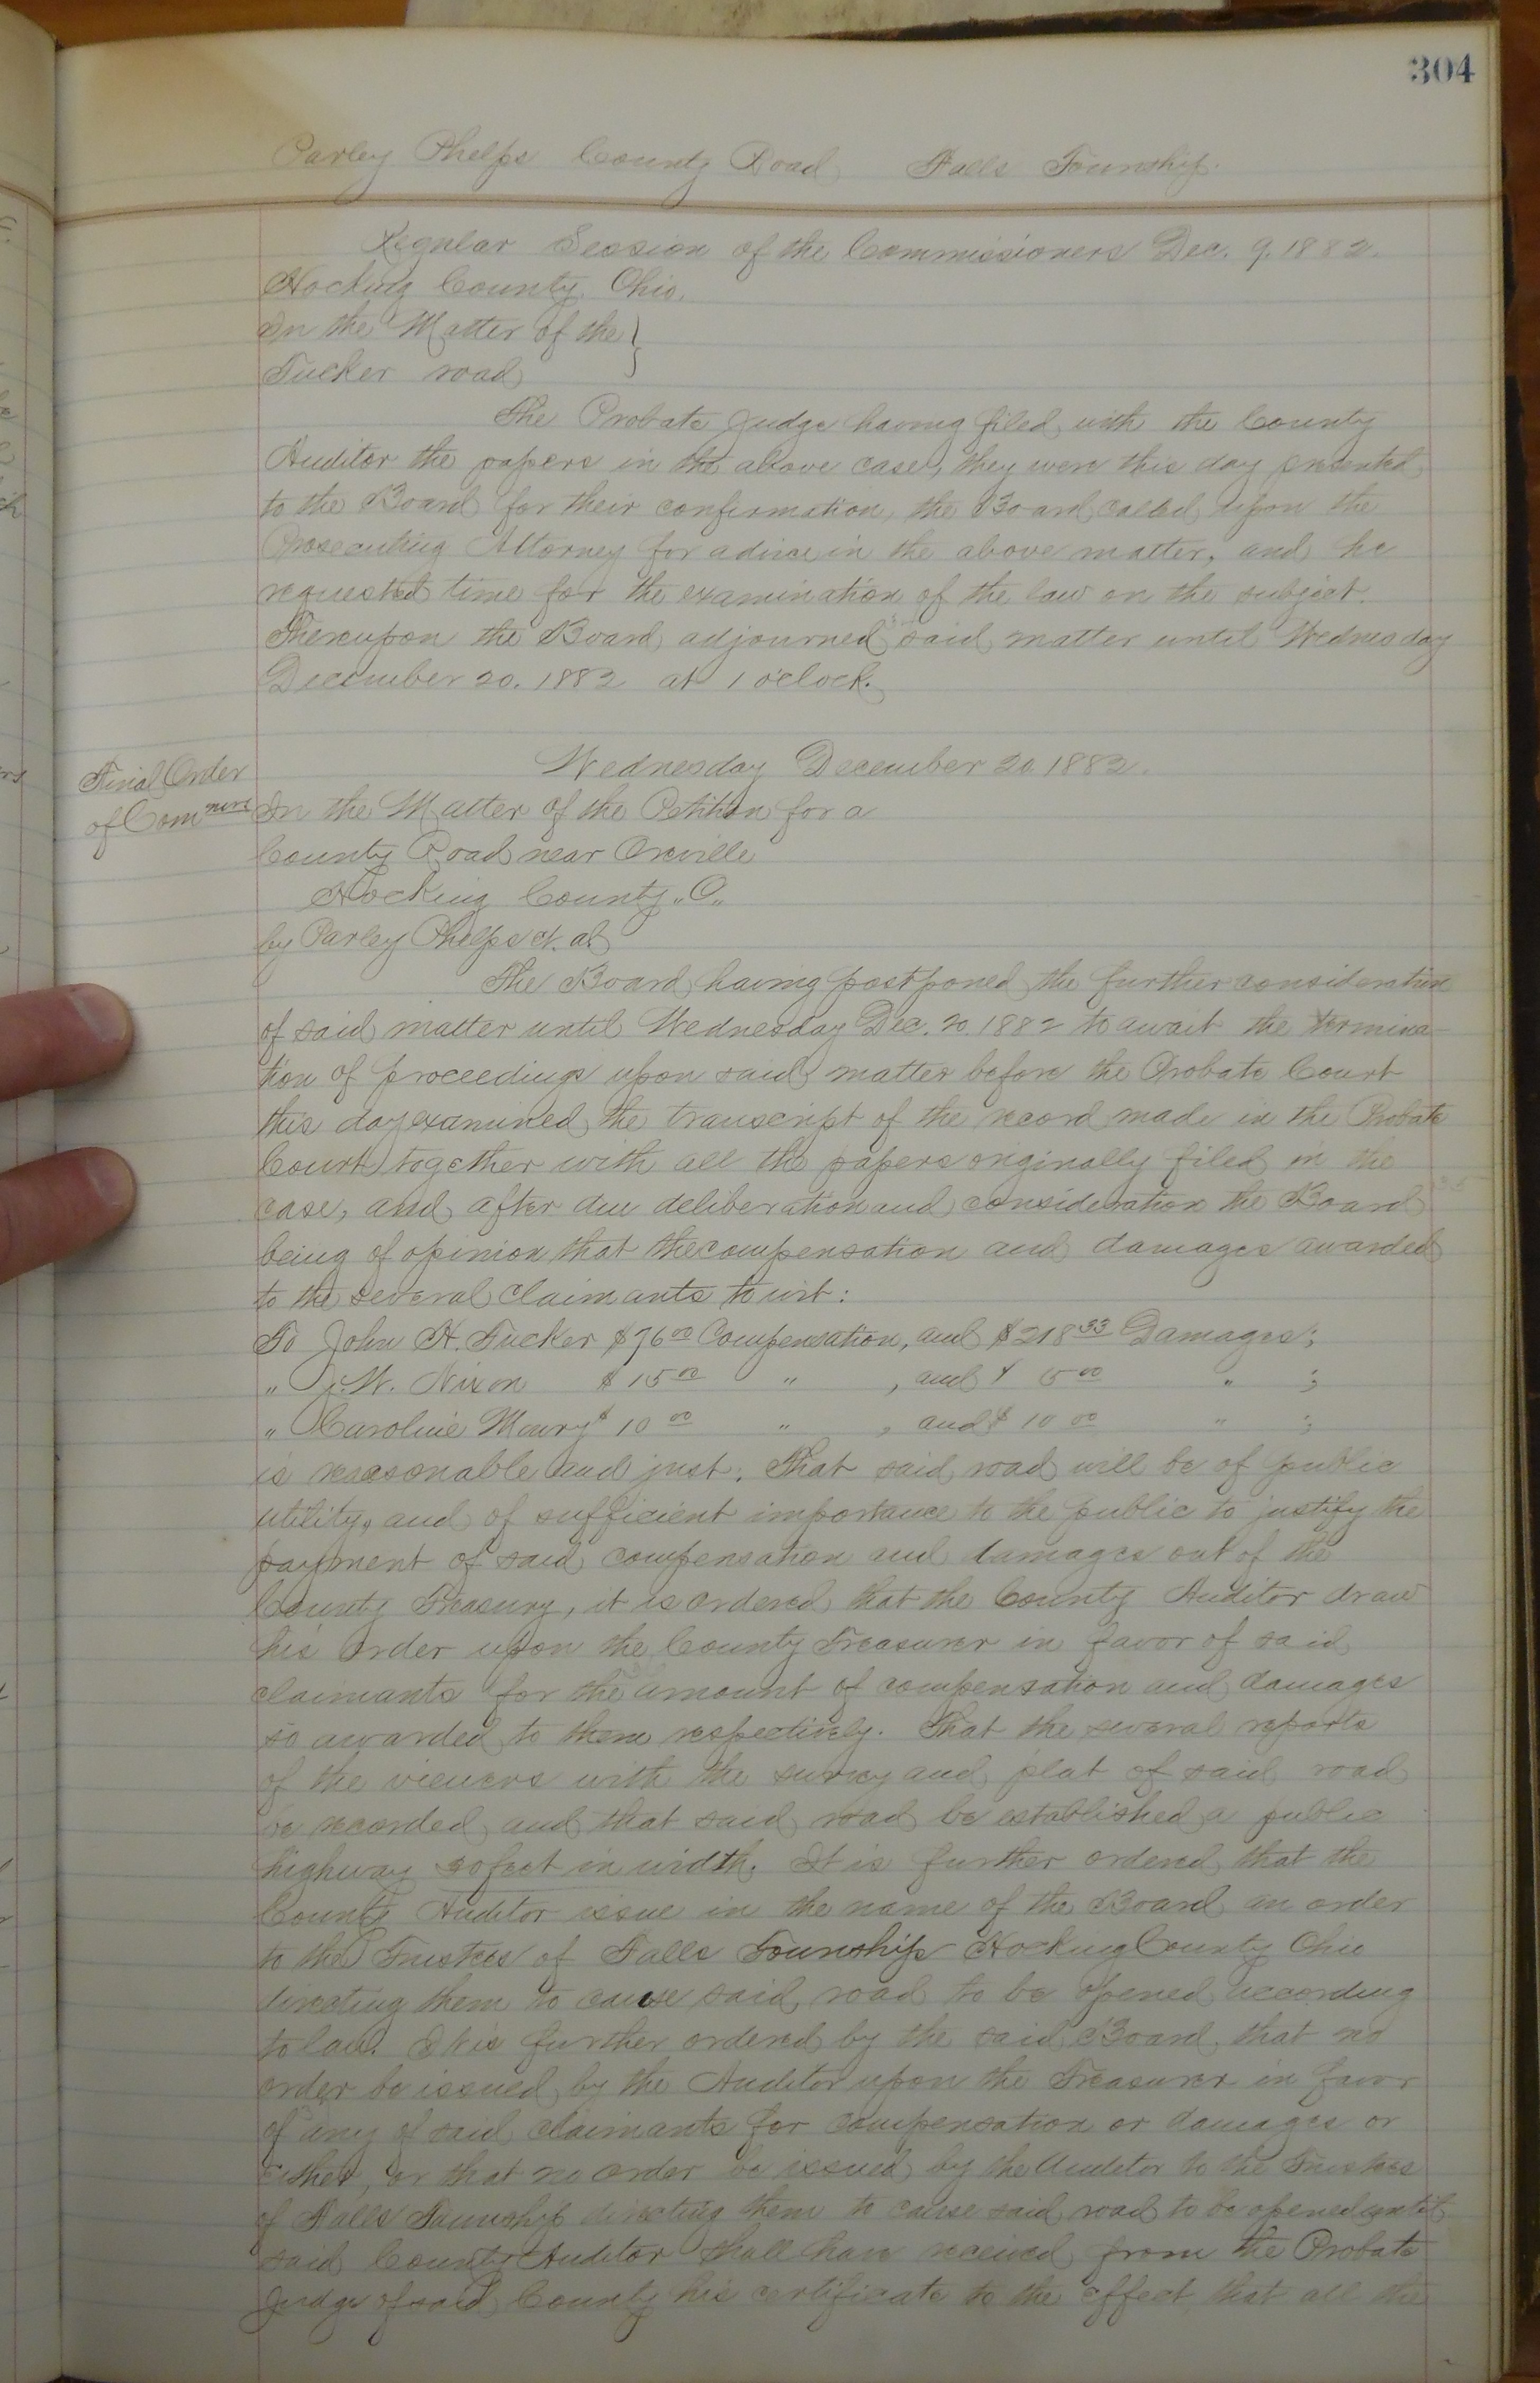 304
Parley Phelps County Road, Falls Township.
Regular Session of the Commissioners Dec. 9. 1882.
Hocking County, Ohio.
In the Matter of the }
Tucker road
The Probate Judge having filed with the County
Auditor the papers in the above case, they were this day presented
to the Board for their confirmation, the Board called upon the
Prosecuting Attorney for advice in the above matter, and he
requested time for the examination of the law on the subject.
Thereupon the Board adjourned said matter until Wednesday
December 20. 1882 at 1 o'clock.
Wednesday December 20 1882.
Final Order
of Comners
In the Matter of the Petition for a
County Road near Orville
Hocking County "O"
by Parley Phelps et. al
The Board having postponed the further consideration
of said matter until Wednesday Dec. 20. 1882 to await the termina-
tion of proceedings upon said matter before the Probate Court
this day examined the transcript of the record made in the Probate
Court together with all the papers originally filed in the
case, and after due deliberation and consideration the Board
being of opinion that the compensation and damages awarded
to the several claimants to wit:
To John H. Tucker $76 00 Compensation, and $218 33 Damages;
" J. W. Nixon $15 00 " , and $ 5 00 " ;
" Caroline Mowry $ 10 00 " , and $ 10 00 " ;
is reasonable and just. That said road will be of public
utility, and of sufficient importance to the public to justify the
payment of said compensation and damages out of the
County Treasury, it is ordered that the County Auditor draw
his order upon the County Treasurer in favor of said
claimants for the amount of compensation and damages
so awarded to them respectively. That the several reports
of the viewers with the survey and plat of said road
be recorded and that said road be established a public
highway feet in width. It is further ordered that the
County Auditor issue in the name of the Board an order
to the Trustees of Falls Township Hocking County Ohio
directing them to cause said road to be opened according
to law. It is further ordered by the said Board, that no
order be issued by the Auditor upon the Treasurer in favor
of any of said claimants for compensation or damages or
either, or that no order be issued by the Auditor to the Trustees
of Falls Township directing them to cause said road to be opened until
said County Auditor shall have received from the Probate
Judge of said County his certificate to the effect that all the